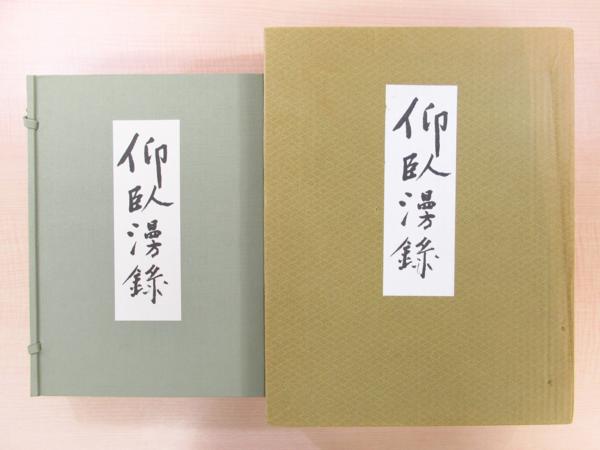 仰臥漫録
仰臥漫録